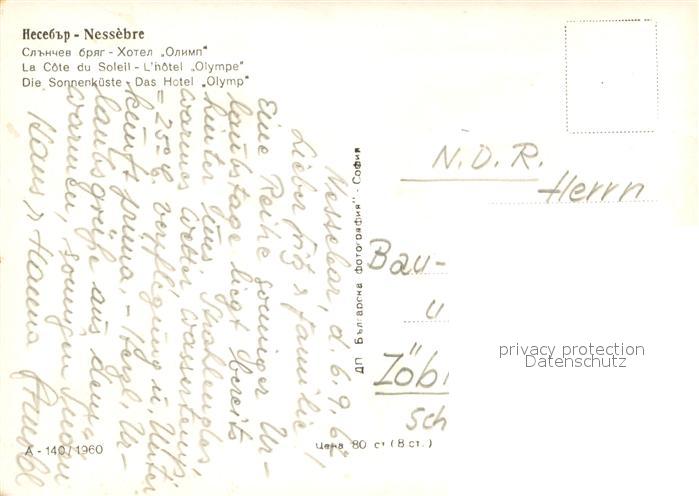 Несебър - Nessèbre
Слънчев бряг - Хотел „Олимп“
La Côte du Soleil - L'hôtel „Olympe“
Die Sonnenküste - Das Hotel „Olymp“
Nessebar, d. 6.9.
Lieber Fritz & Familie!
Eine Reihe sonniger Ur-
laubstage liegt bereits
hinter uns. Strahlendes,
warmes Wetter Wassertemp.
= 25° C. Verpflegung u. Unter-
kunft prima. - Herzl. Ur-
laubsgrüße aus dem
warmen, sonnigen Süden
Hans & Hanna Arnold
ДП „Българска фотография“ - София
N.D.R.
Herrn
Bau-
u
Zöbl
sch
privacy protection
Datenschutz
А - 140/1960
Цена 80 ст (8 ст.)